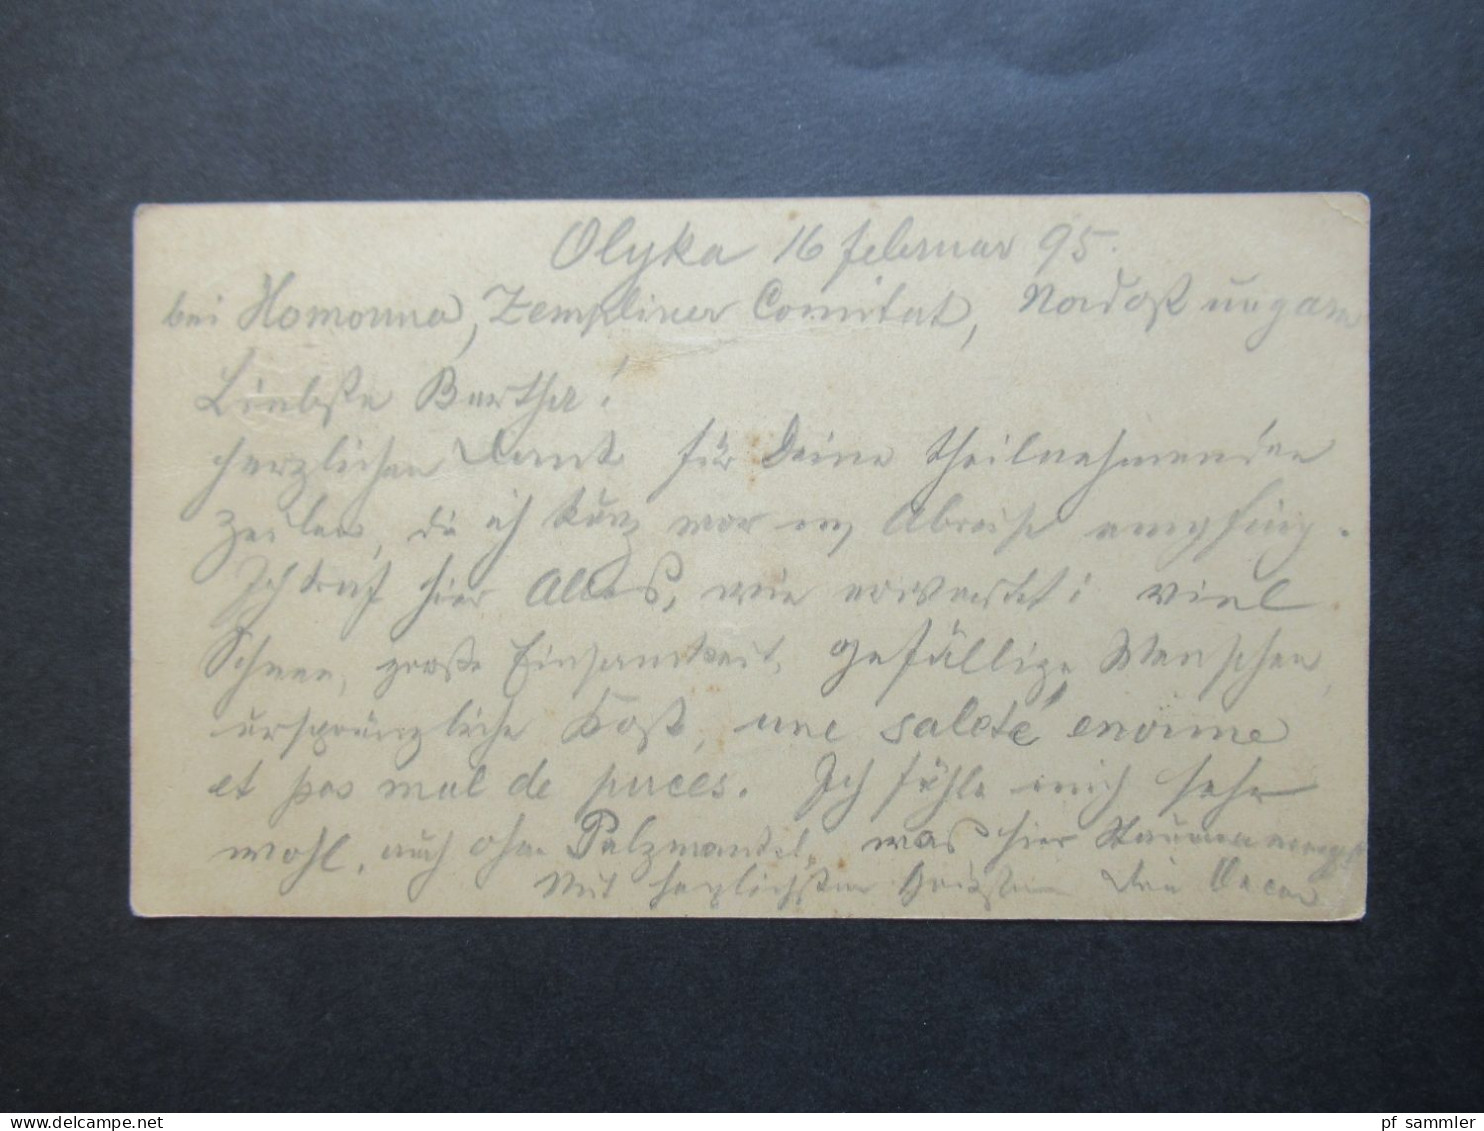 Olyka 16 Februar 95.
bei Homonna, Zempliner Comitat, Nordostungarn
Liebste Bertha!
herzlichen Dank für Deine theilnehmenden
Zeilen, die ich kurz vor m Abreise empfing.
Ich traf hier Alles, wie erwartet: viel
Schnee, große Einsamkeit, gefällige Menschen,
ursprüngliche Kost, une saleté énorme
et pas mal de puces. Ich fühle mich sehr
wohl, auch ohne Pelzmantel, was hier Staunen erregt
Mit herzlichsten Grüßen Dein Oscar
www.delcampe.net
pf_sammler